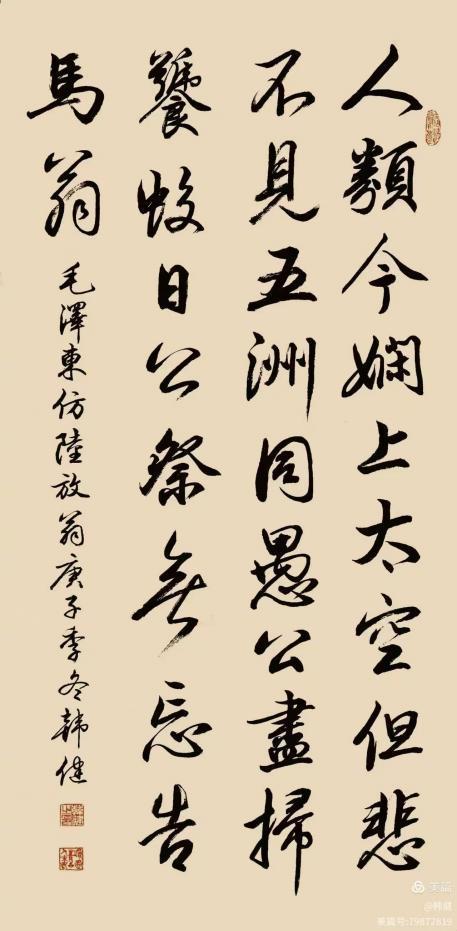 人類今嫻上太空但悲
不見五洲同愚公盡掃
饕蚊日公祭無忘告
馬翁
毛澤東仿陸放翁庚子季冬韓健
美篇
@韩健
美篇号: